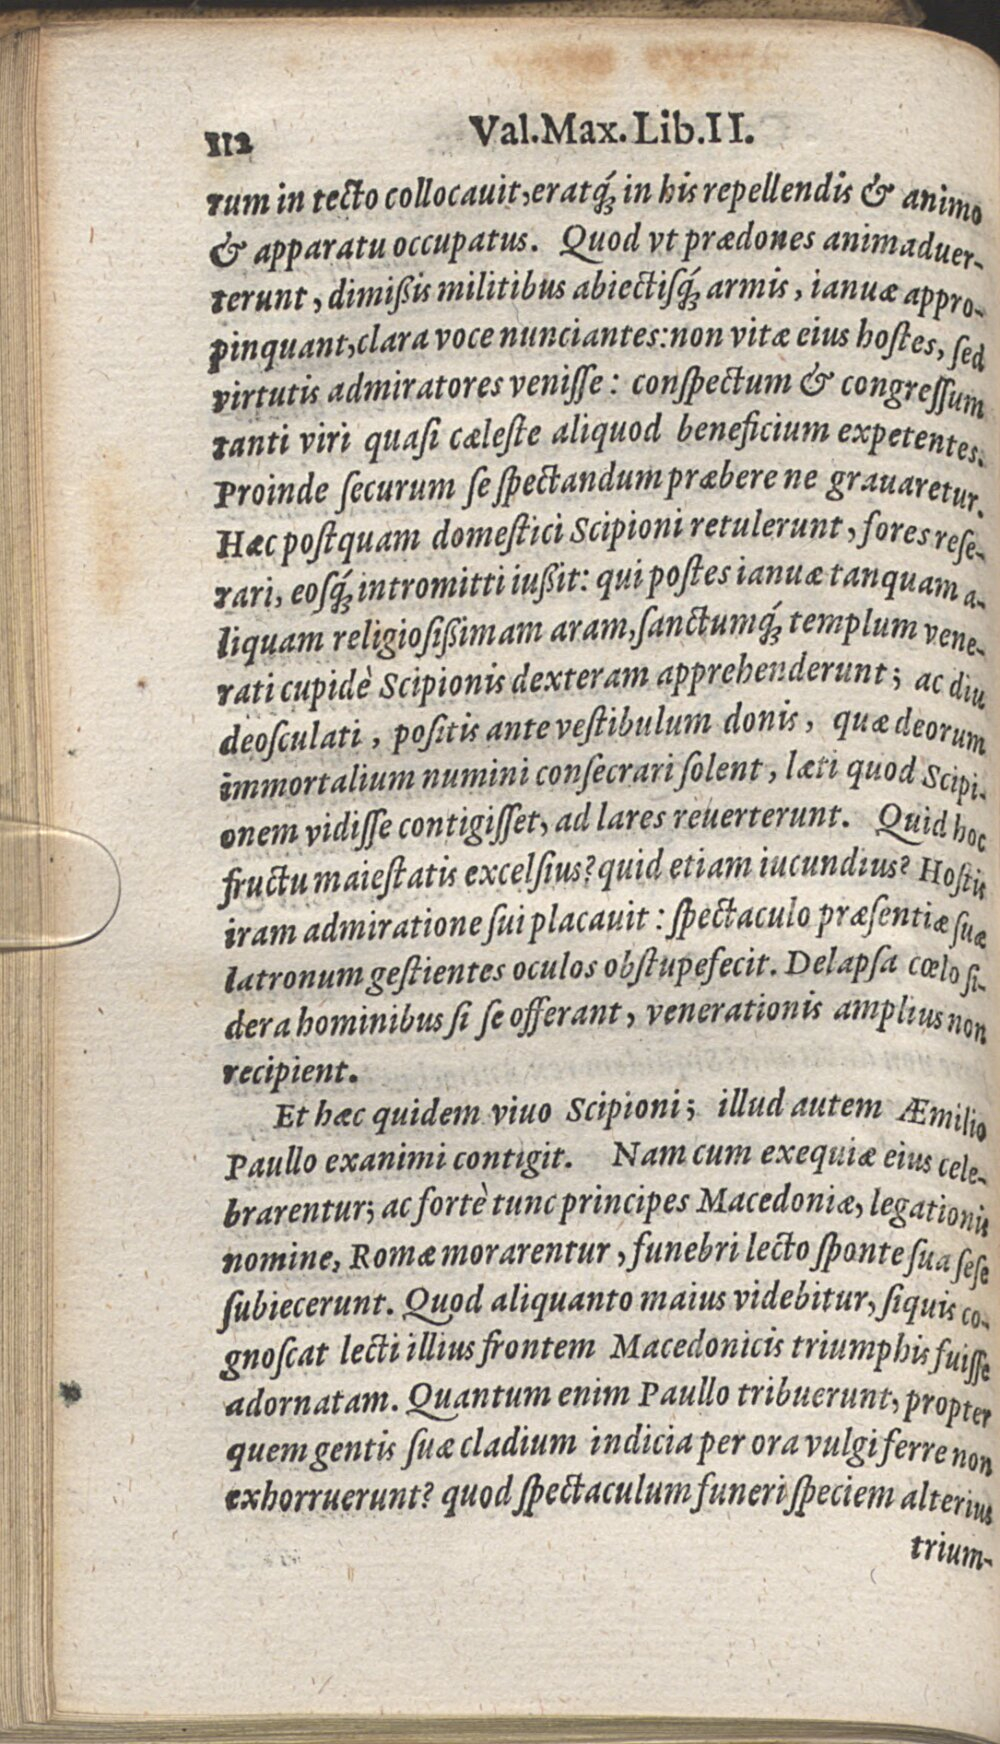 112 Val. Max. Lib. II.
rum in tecto collocauit, eratq́; in his repellendis & animo
& apparatu occupatus. Quod vt prædones animaduer-
terunt, dimißis militibus abiectiſq́; armis, ianuæ appro-
pinquant, clara voce nunciantes: non vitæ eius hoſtes, ſed
virtutis admiratores veniſſe: conſpectum & congreſſum
tanti viri quaſi cæleſte aliquod beneficium expetentes.
Proinde ſecurum ſe ſpectandum præbere ne gravaretur.
Hæc poſtquam domeſtici Scipioni retulerunt, fores reſe-
rari, eoſq́; intromitti iußit: qui poſtes ianuæ tanquam a-
liquam religioſißimam aram, ſanctumq́; templum vene-
rati cupidè Scipionis dexteram apprehenderunt; ac diu
deoſculati, poſitis ante veſtibulum donis, quæ deorum
immortalium numini conſecrari ſolent, læti quod Scipi-
onem vidiſſe contigiſſet, ad lares reuerterunt. Quid hoc
fructu maieſtatis excelſius? quid etiam iucundius? Hoſtis
iram admiratione ſui placauit: ſpectaculo præſentiæ ſuæ
latronum geſtientes oculos obſtupefecit. Delapſa cœlo ſi-
dera hominibus ſi ſe offerant, venerationis amplius non
recipient.
Et hæc quidem viuo Scipioni; illud autem Æmilio
Paullo exanimi contigit. Nam cum exequiæ eius cele-
brarentur; ac fortè tunc principes Macedoniæ, legationis
nomine, Romæ morarentur, funebri lecto ſponte ſua ſeſe
ſubiecerunt. Quod aliquanto maius videbitur, ſiquis co-
gnoſcat lecti illius frontem Macedonicis triumphis fuiſſe
adornatam. Quantum enim Paullo tribuerunt, propter
quem gentis ſuæ cladium indicia per ora vulgi ferre non
exhorruerunt? quod ſpectaculum funeri ſpeciem alterius
trium-